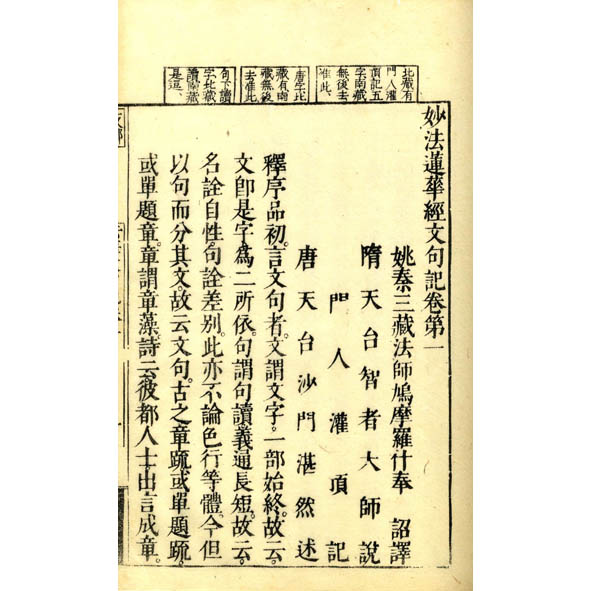 北藏有
門人灌
頂記五
字南藏
無後去
准此、
唐字北
藏有南
藏無後
去准此
句下讀
字北藏
讀南藏
是逗、
妙法蓮華經文句記卷第一
姚秦三藏法師鳩摩羅什奉 詔譯
隋天台智者大師說
門人灌頂記
唐天台沙門湛然述
釋序品初。言文句者。文謂文字。一部始終。故云。
文卽是字。爲二所依。句謂句讀。義通長短。故云。
名詮自性。句詮差別。此亦不論色行等體。今但
以句而分其文。故云文句。古之章䟽。或單題䟽。
或單題章。章謂章藻。詩云。彼都人士。出言成章。